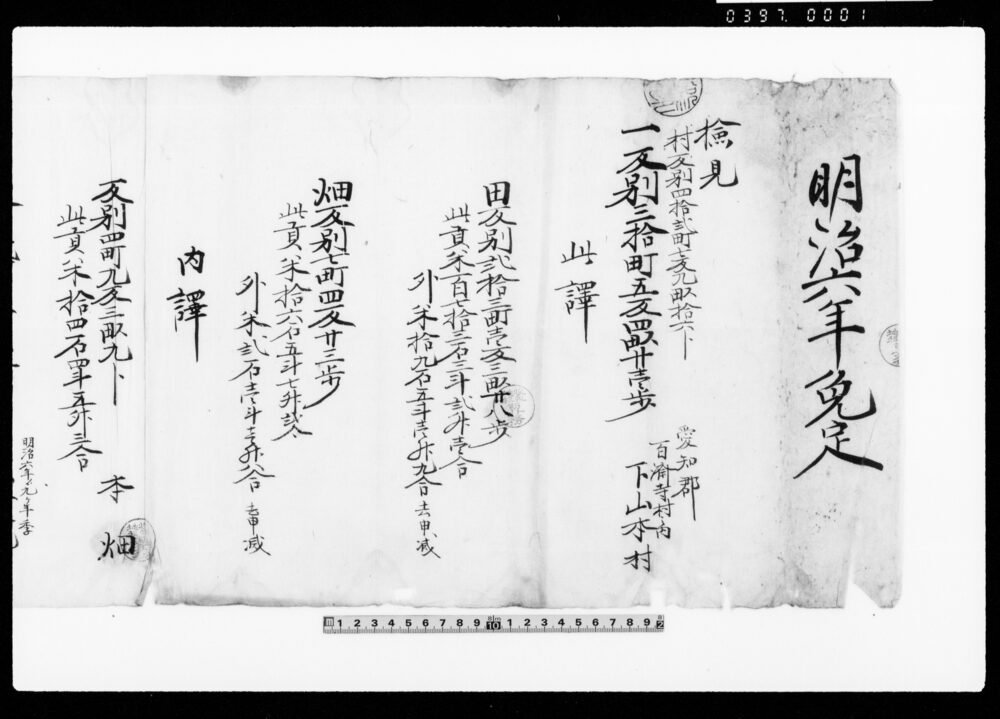 0397. 0001
明治六年免定
檢見
村反別四拾弐町七反九畝拾六卜
一反別三拾町五反四畝廿壱歩
愛知郡
百済寺村内
下山本村
此譯
田反別弐拾三町壱反三畝廿八歩
此貢米百拾三石三斗弐升壱合
外米拾九石五斗壱升九合 去申減
畑反別七町四反廿三歩
此貢米拾六石五斗七升弐合
外米弐石壱斗三升八合 去申減
内譯
反別四町九反三畝九卜
本畑
此貢米拾四石四斗五升三合
明治六年ゟ九ヶ年季